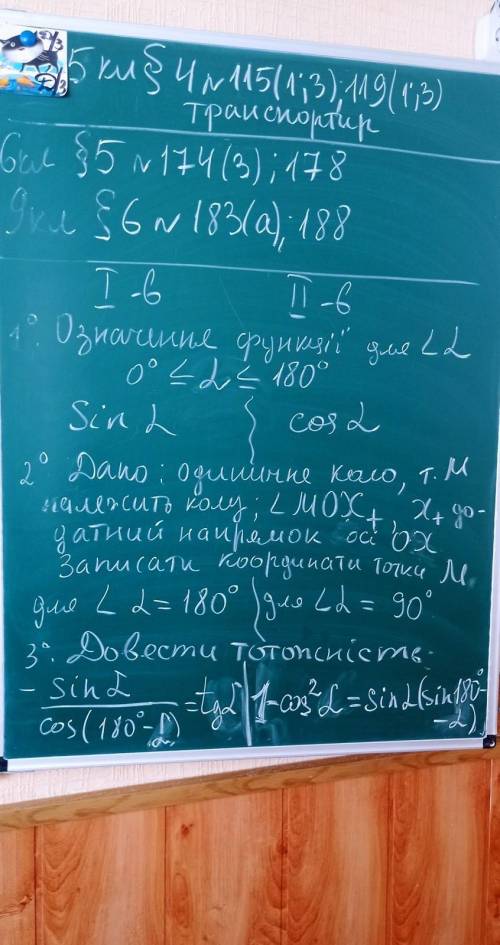 Д/З
5 кл § 4 № 115(1;3); 119(1;3)
транспортир
6 кл § 5 № 174(3); 178
9 кл § 6 № 183(а); 188
I - в II - в
1°. Означення функції для ∠α
0° ≤ α ≤ 180°
sin α cos α
2° Дано: одличне коло, т. M
належить колу; ∠MOX₊, x₊ до-
датний напрямок осі OX
Записати координати точки M
для ∠α = 180° для ∠α = 90°
3°. Довести тотожність
- sin α / cos(180° - α) = tg α | 1 - cos² α = sin α (sin 180° -
- α)